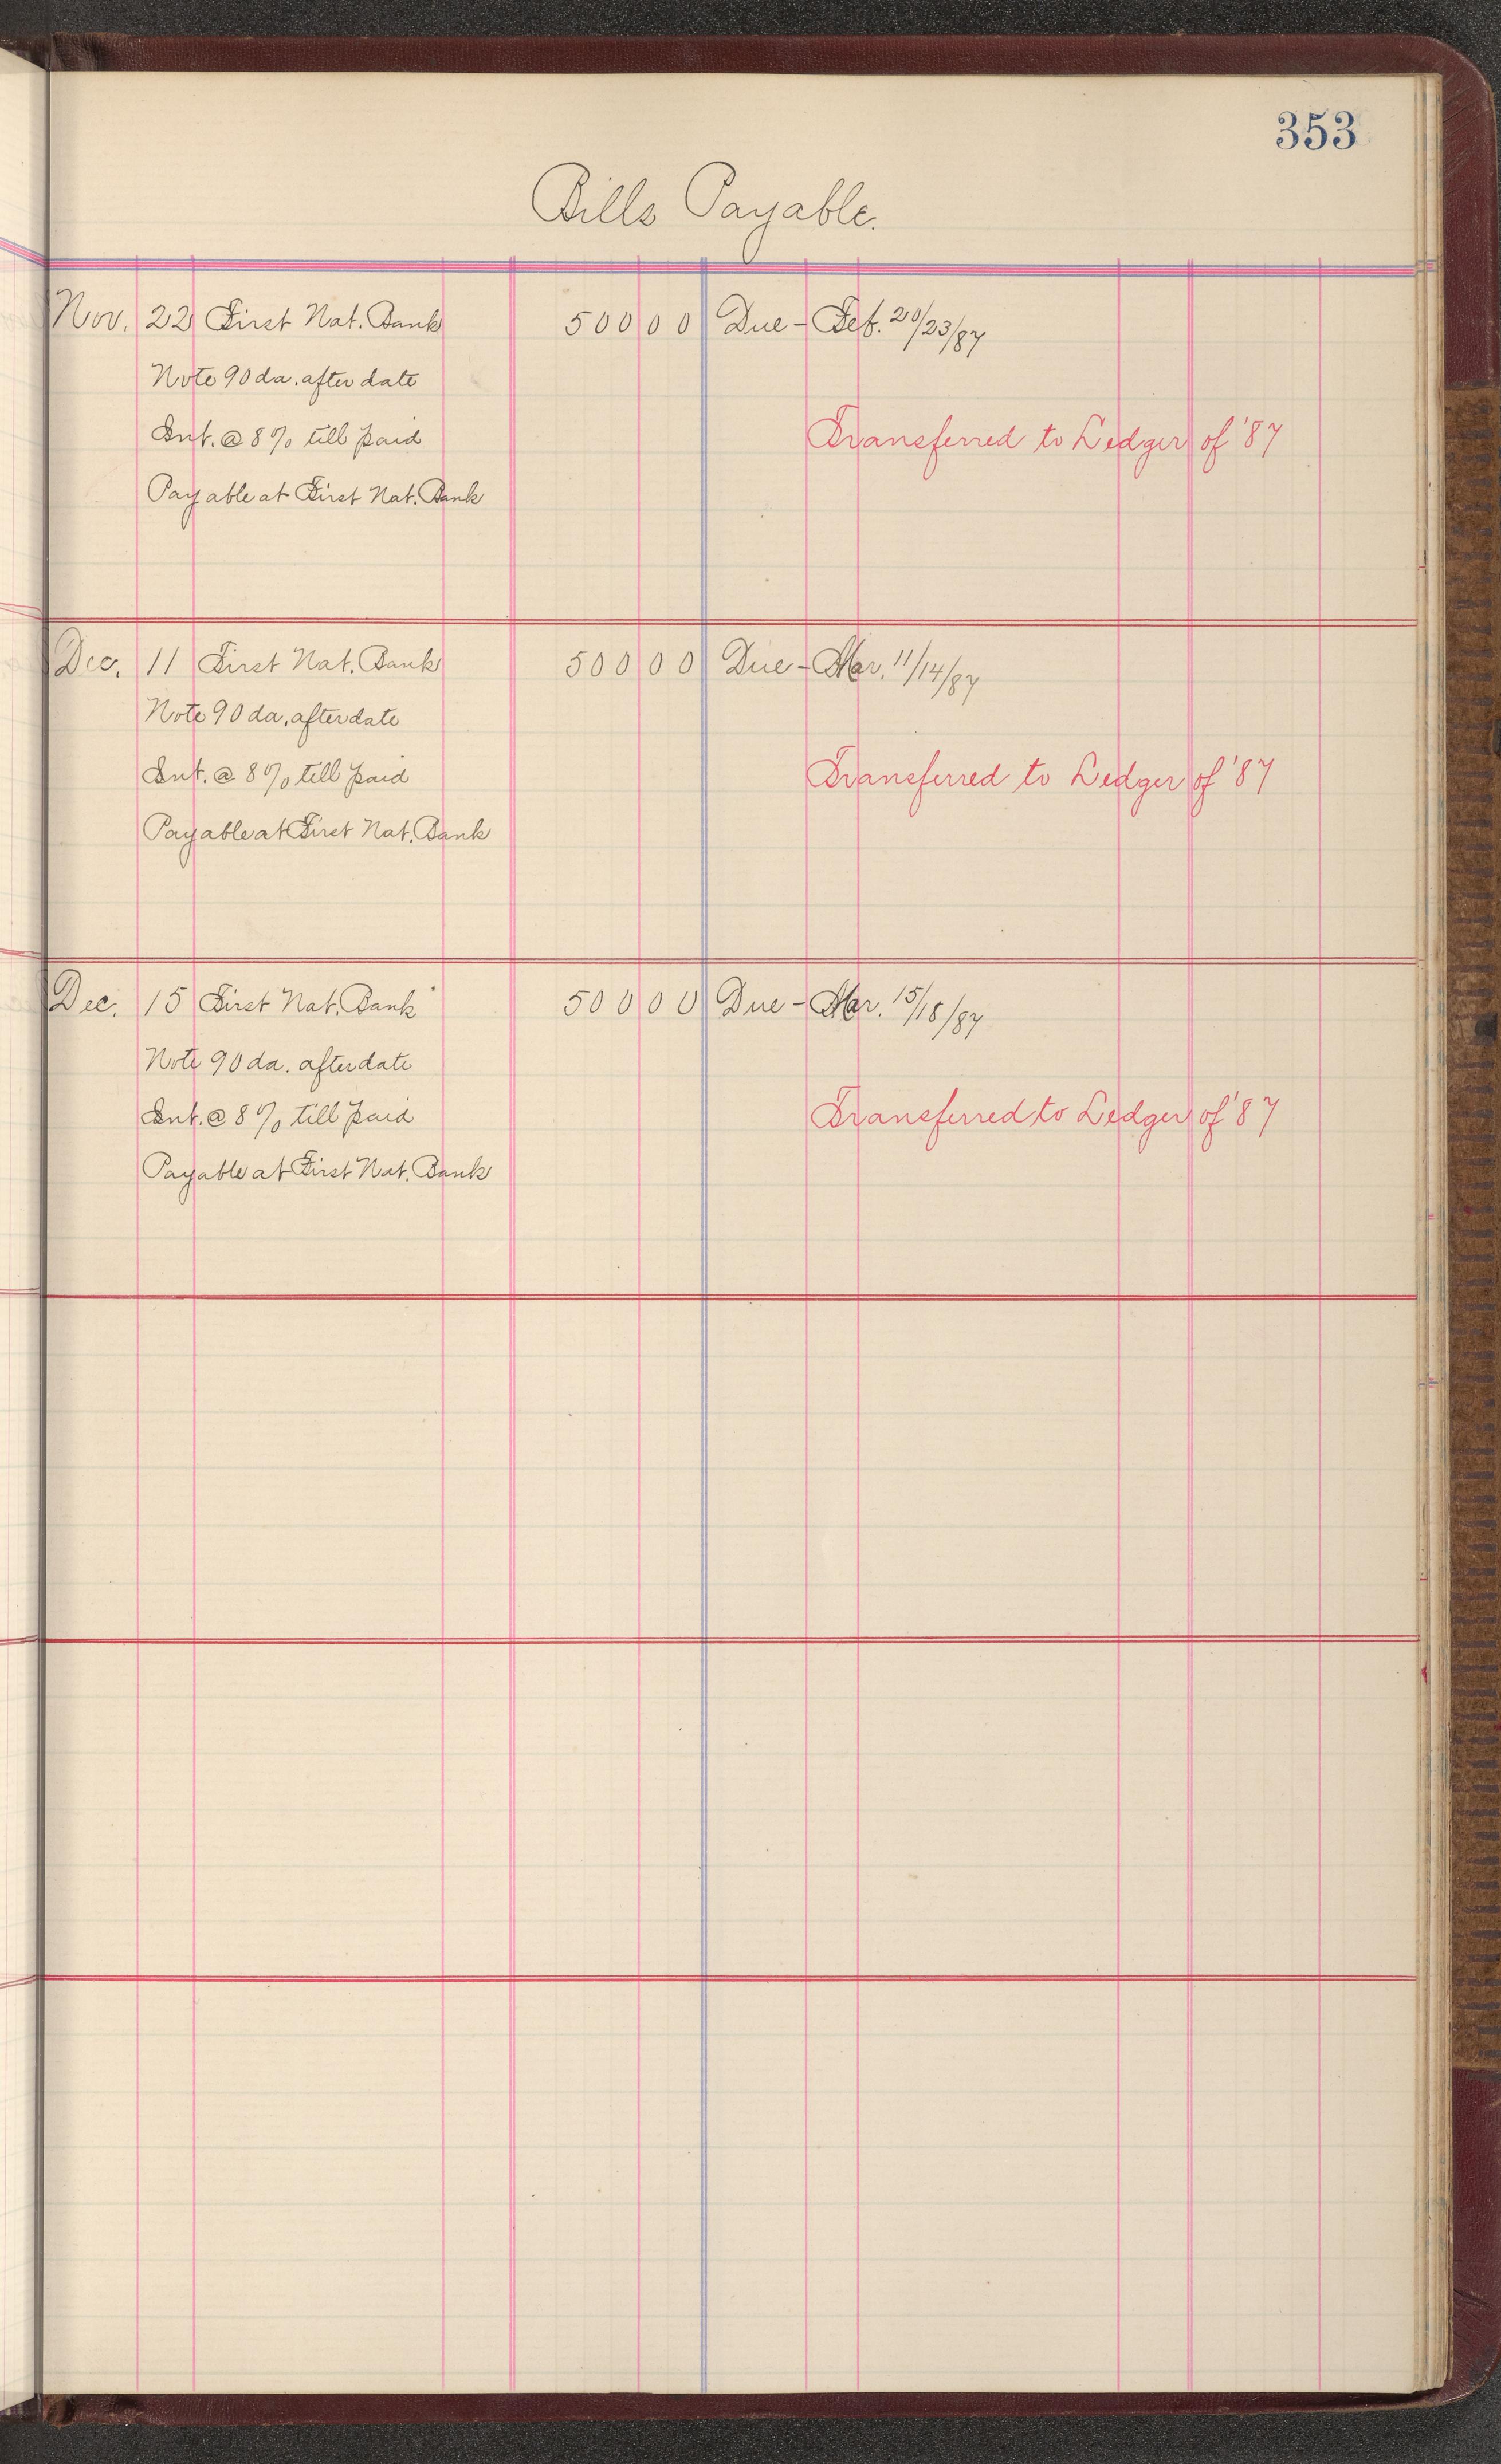 353
Bills Payable.
Nov. 22 First Nat. Bank 500 00 Due - Feb. 20/23/87
Note 90 da. after date
Int. @ 8% till paid Transferred to Ledger of '87
Payable at First Nat. Bank
Dec. 11 First Nat. Bank 500 00 Due - Mar. 11/14/87
Note 90 da. after date
Int. @ 8% till paid Transferred to Ledger of '87
Payable at First Nat. Bank
Dec. 15 First Nat. Bank 500 00 Due - Mar. 15/18/87
Note 90 da. after date
Int. @ 8% till paid Transferred to Ledger of '87
Payable at First Nat. Bank